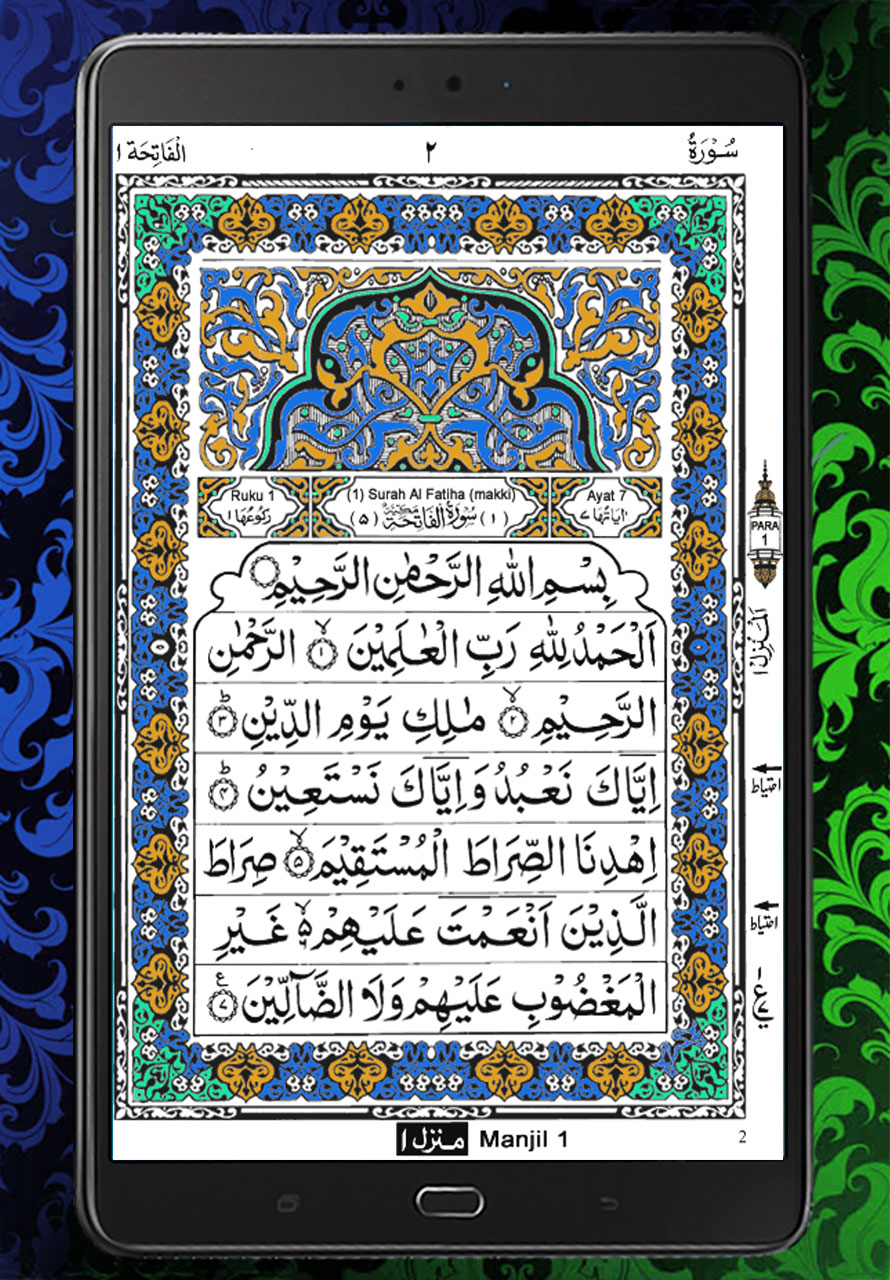 سُوْرَةُ ٢ الْفَاتِحَة ١
Ruku 1 (1) Surah Al Fatiha (makki) Ayat 7
اٰيَاتُهَا ٧ (١) سُوْرَةُ الْفَاتِحَةِ مَكِّيَّةٌ (٥) رُكُوْعُهَا ١
PARA
1
بِسْمِ اللّٰهِ الرَّحْمٰنِ الرَّحِيْمِ
اَلْحَمْدُ لِلّٰهِ رَبِّ الْعٰلَمِيْنَ ۙ﴿١﴾ الرَّحْمٰنِ
الرَّحِيْمِ ۙ﴿٢﴾ مٰلِكِ يَوْمِ الدِّيْنِ ؕ﴿٣﴾
اِيَّاكَ نَعْبُدُ وَاِيَّاكَ نَسْتَعِيْنُ ؕ﴿٤﴾
اِهْدِنَا الصِّرَاطَ الْمُسْتَقِيْمَ ۙ﴿٥﴾ صِرَاطَ
الَّذِيْنَ اَنْعَمْتَ عَلَيْهِمْ ۙ۵ غَيْرِ
الْمَغْضُوْبِ عَلَيْهِمْ وَلَا الضَّآلِّيْنَ ﴿٧﴾ ع
اَلْمَنْزِل ١
احتياط
احتياط
منزل ١ Manjil 1
2